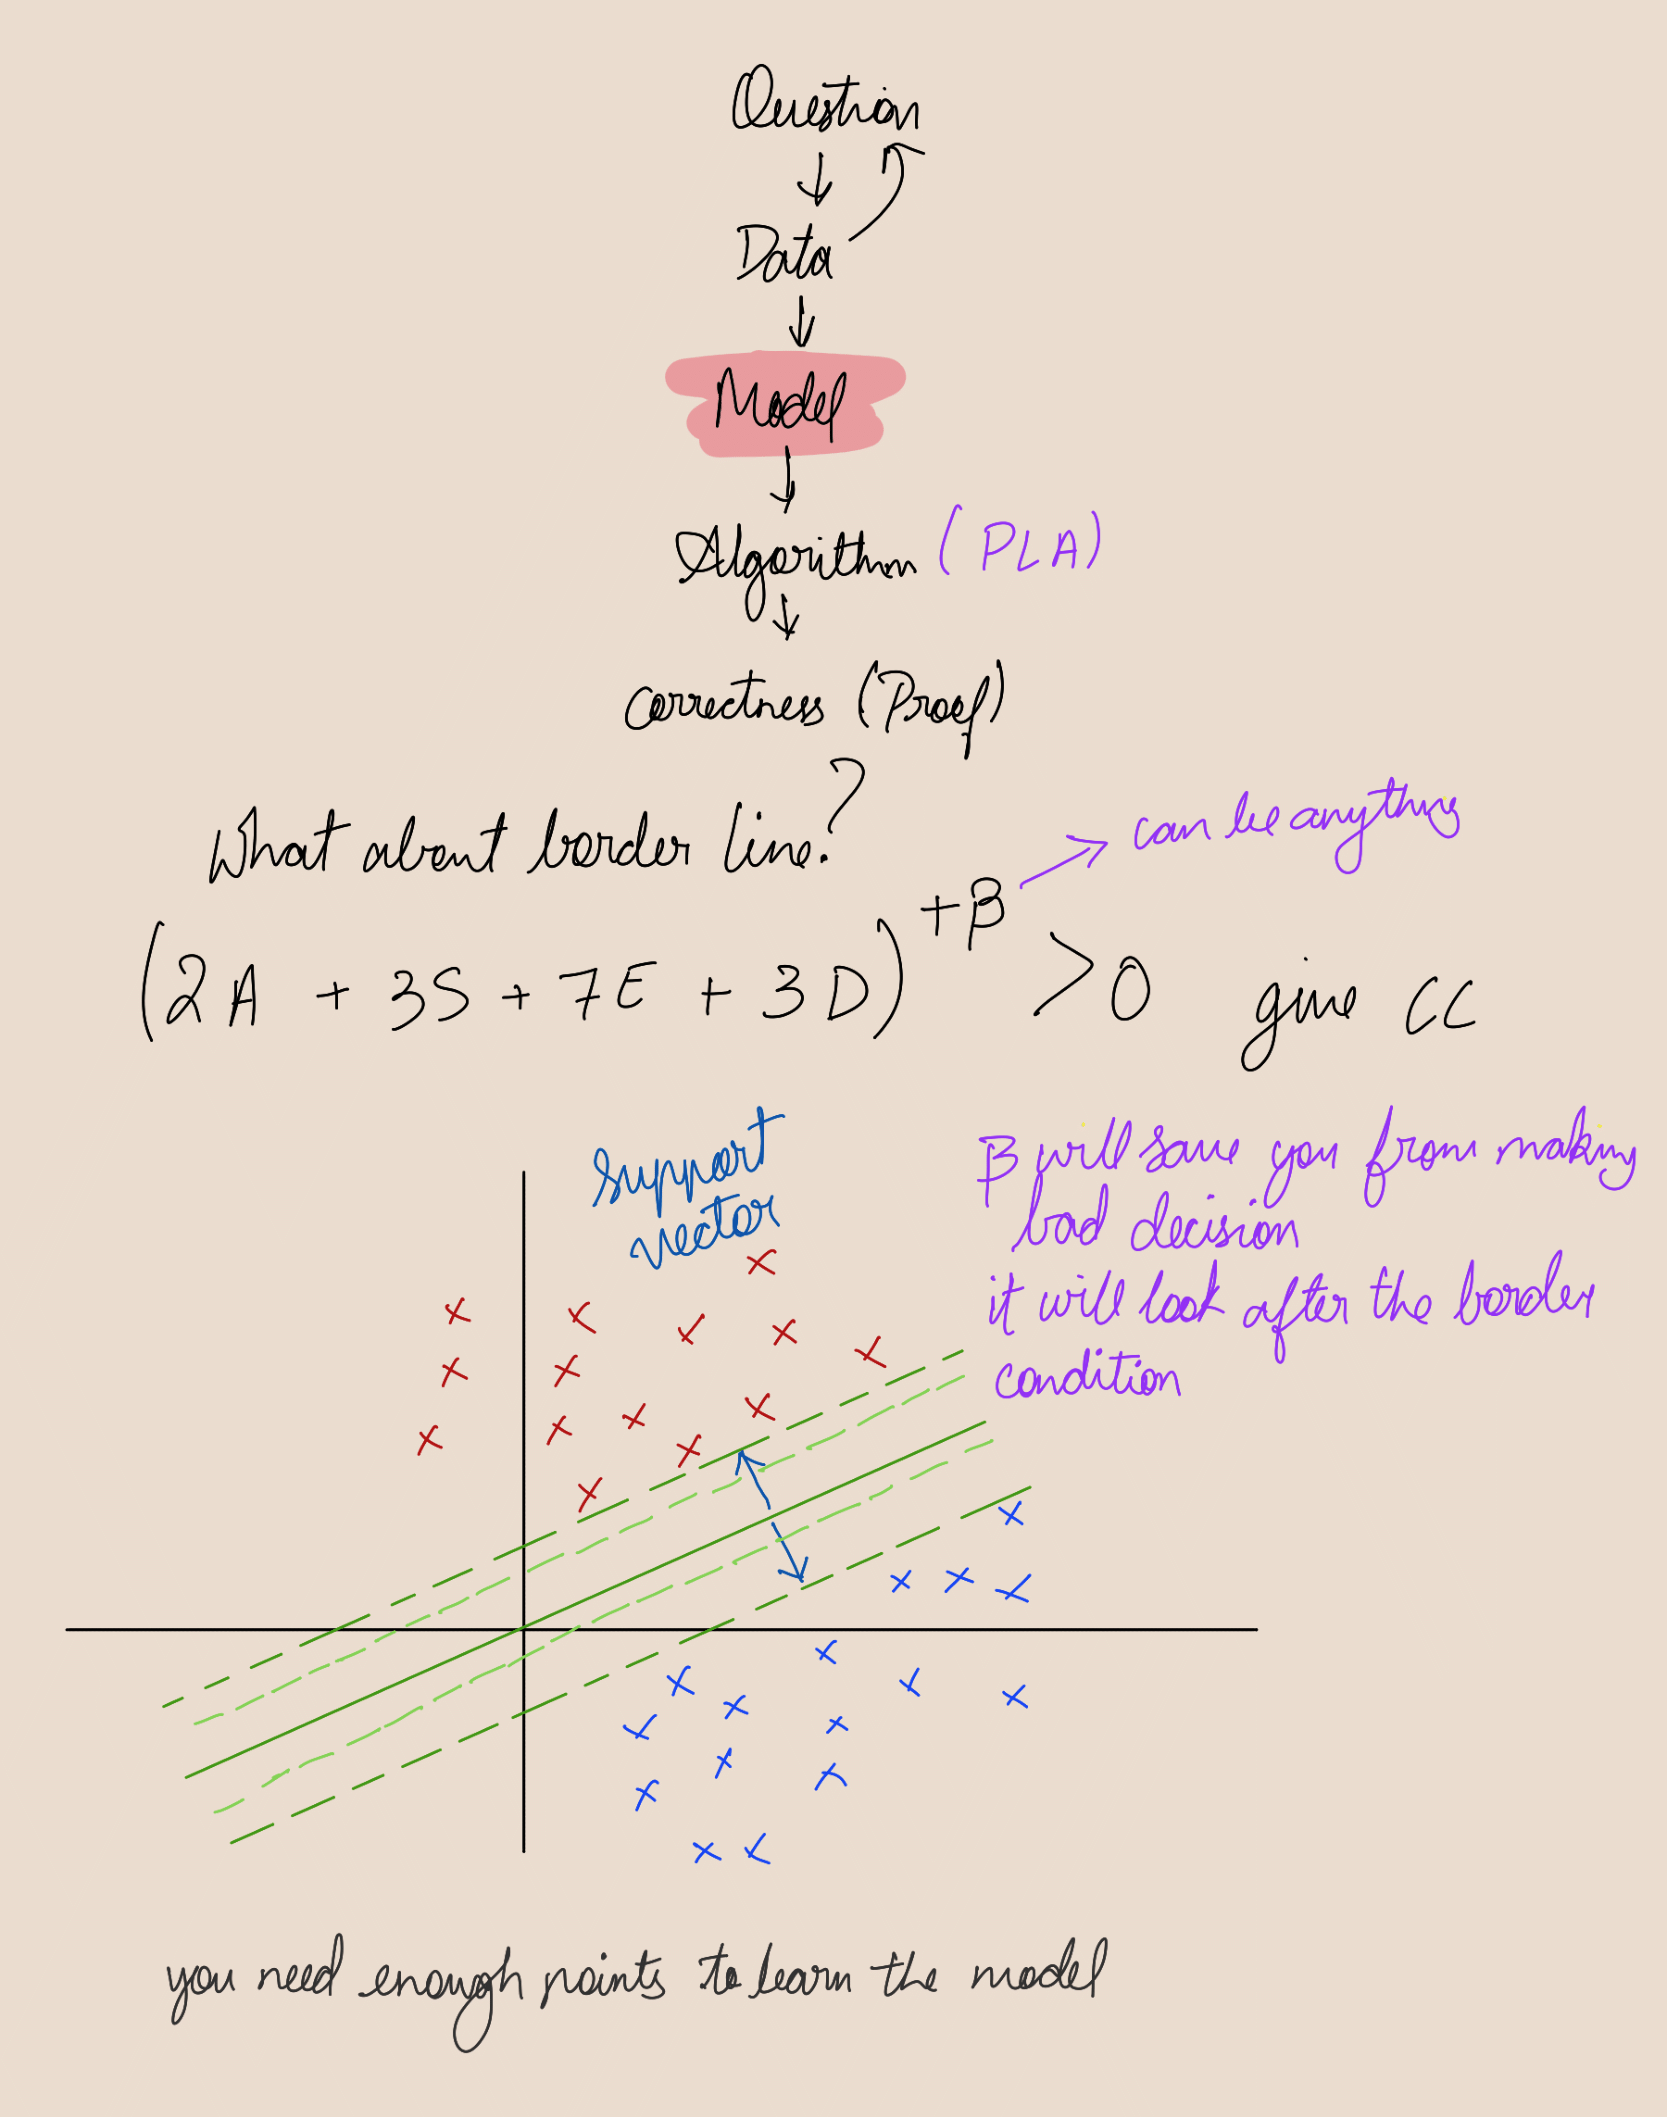 Question
Data
Model
Algorithm (PLA)
Correctness (Proof)
What about border line?
can be anything
(2A + 3S + 7E + 3D) + β > 0 give CC
support
vector
β will save you from making
bad decision
it will look after the border
condition
you need enough points to learn the model